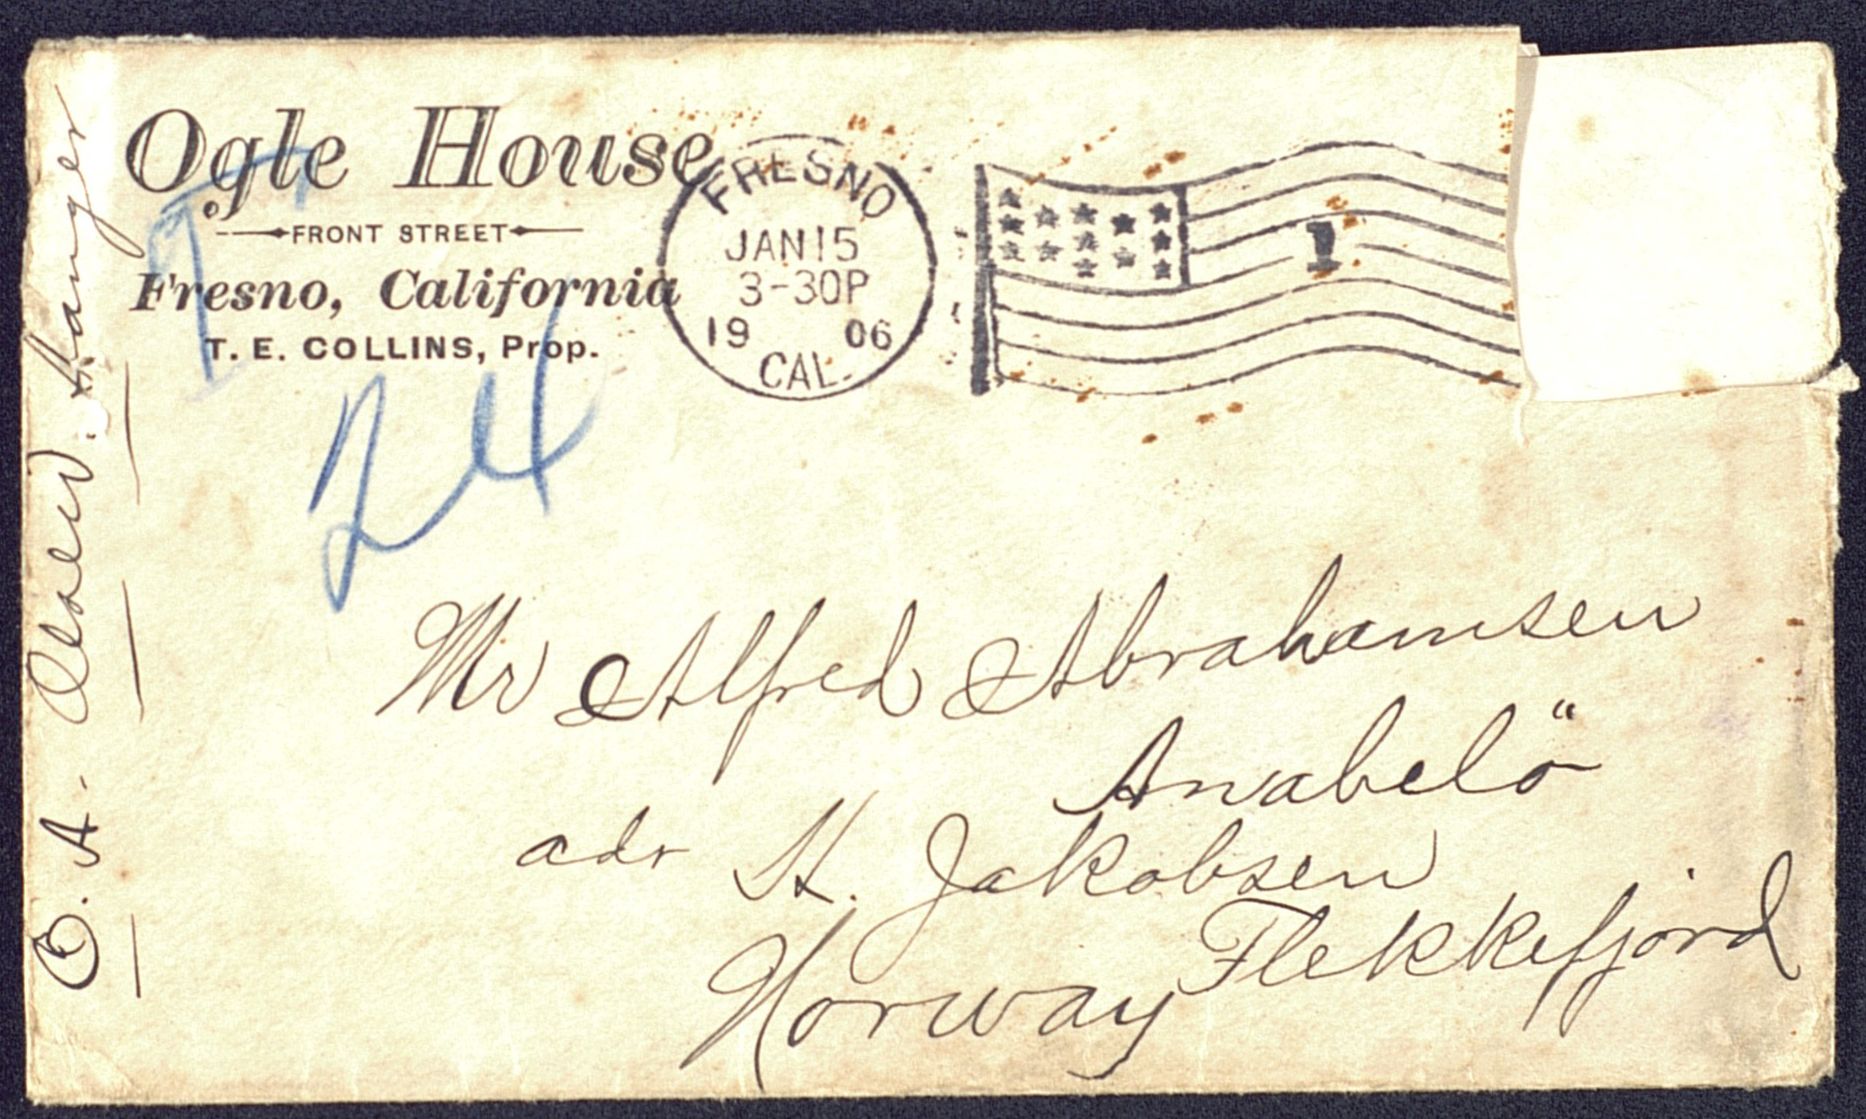 Ogle House
FRONT STREET
Fresno, California
T. E. COLLINS, Prop.
FRESNO
JAN 15
3-30P
19 06
CAL.
1
T
24
O. A. Olsen Stanger
Mr Alfred Abrahamsen
Anabelö
adr St. Jakobsen
Flekkefjord
Norway